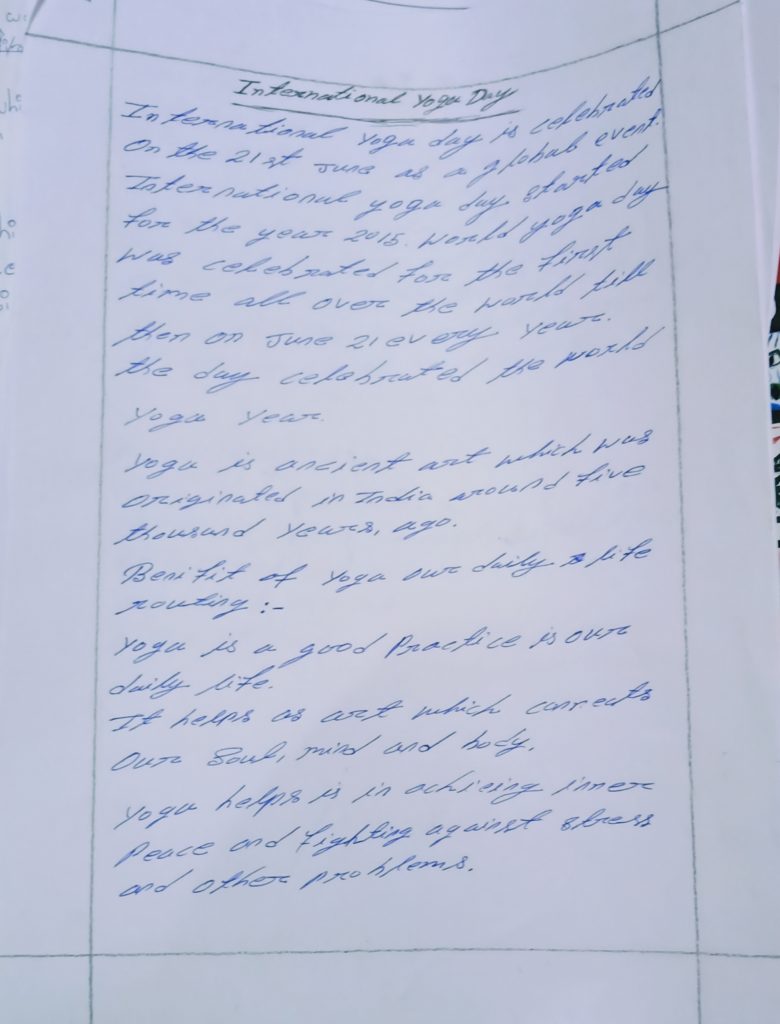 International Yoga Day
International Yoga day is celebrated
On the 21st June as a global event.
International yoga day started
for the year 2015. World yoga day
was celebrated for the first
time all over the world till
then on June 21 every year.
the day celebrated the world
Yoga Year.
Yoga is ancient art which was
originated in India around five
thousand years, ago.
Benifit of Yoga our daily life
routing :-
Yoga is a good Practice is our
daily life.
It helps as art which connects
Our Soul, mind and body.
Yoga helps is in achieing inner
Peace and fighting against stress
and other problems.